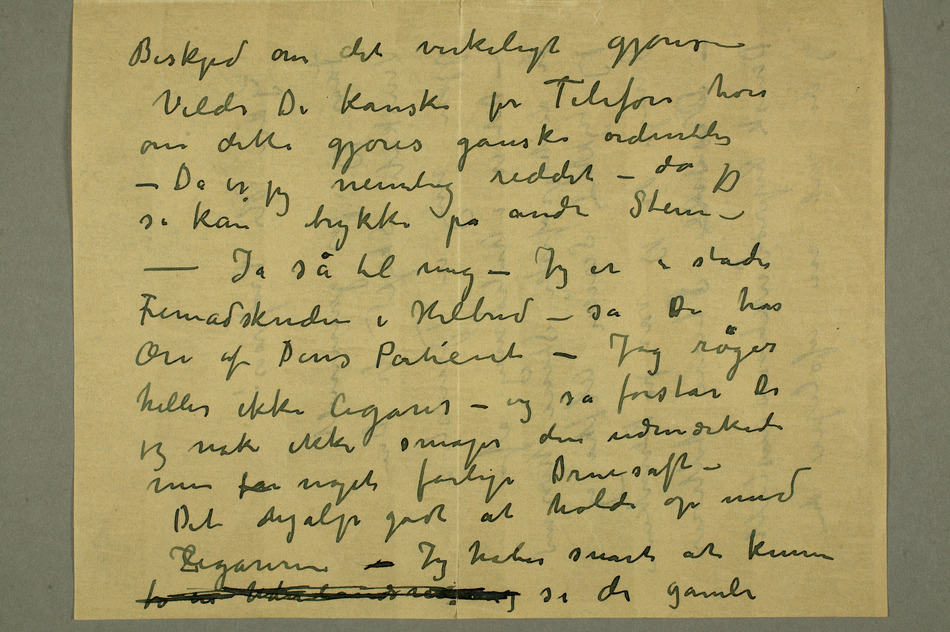 Beskjed om det virkeligt gjøres
Vilde De kanske pr Telefon høre
om dette gjøres ganske ordentlig
– Da er jeg nemlig reddet – da jeg
så kan trykke på andre Stene –
— Ja så til mig – Jeg er i stadi
Fremadskriden i Helbred – så De har
Ære af Deres Patient – Jeg røger
heller ikke Cigarer – og så forstår De
jeg nok ikke smager den udmærkede
men noget farlige Druesaft –
Det hjalp godt at holde op med
Zigarerne – Jeg håber snart at kunne
se de gamle